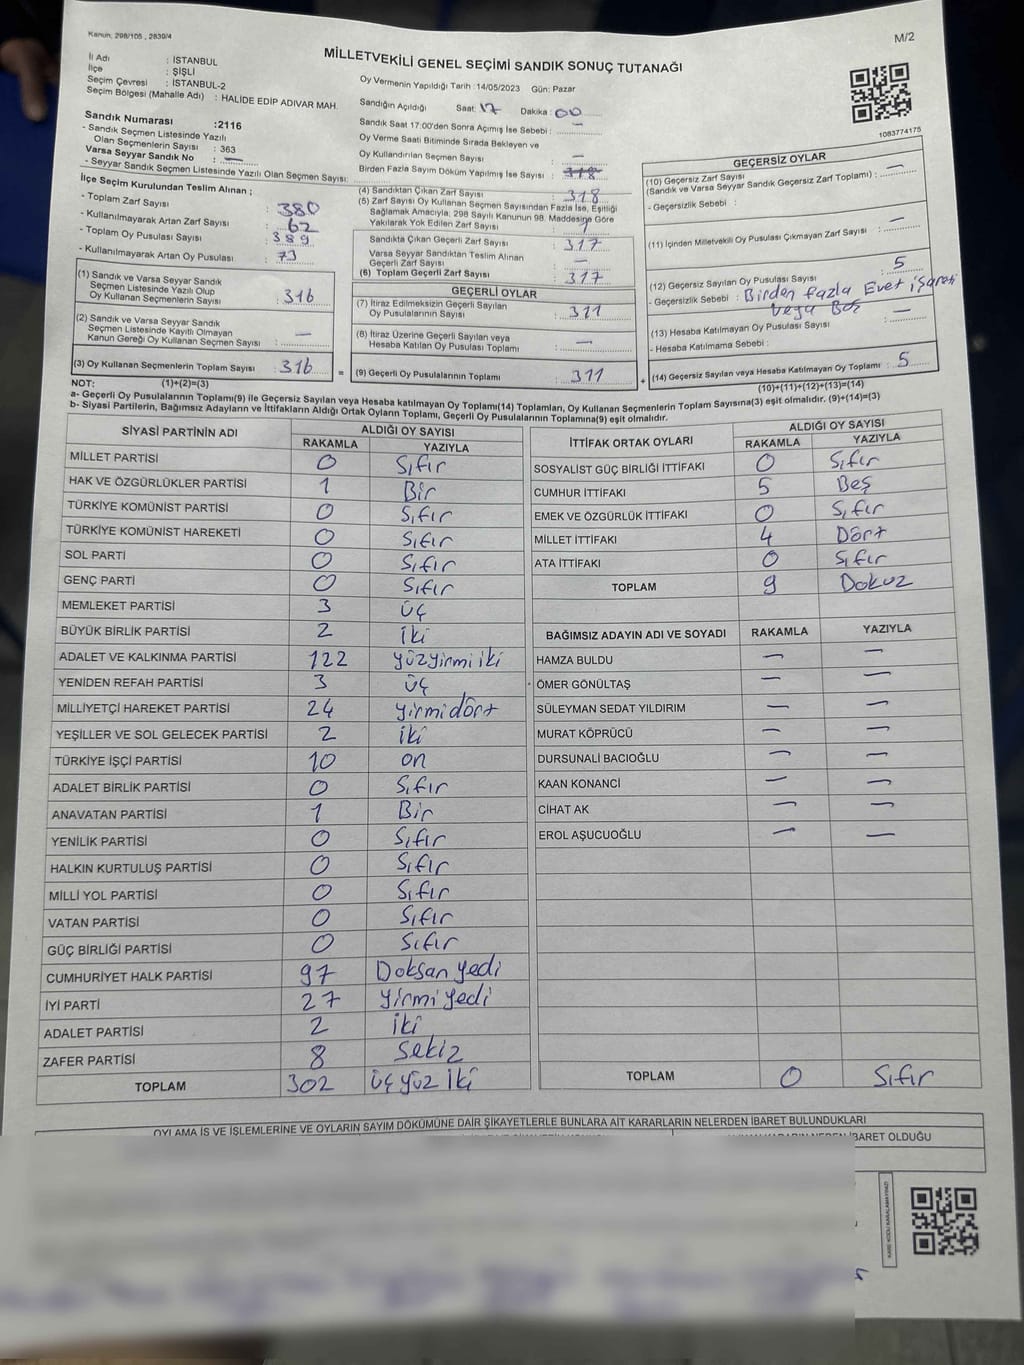 Kanun: 298/105 , 2839/4
M/2
MİLLETVEKİLİ GENEL SEÇİMİ SANDIK SONUÇ TUTANAĞI
İl Adı : İSTANBUL
İlçe : ŞİŞLİ
Seçim Çevresi : İSTANBUL-2
Seçim Bölgesi (Mahalle Adı) : HALİDE EDİP ADIVAR MAH.
Sandık Numarası :2116
- Sandık Seçmen Listesinde Yazılı
Olan Seçmenlerin Sayısı : 363
Varsa Seyyar Sandık No : —
- Seyyar Sandık Seçmen Listesinde Yazılı Olan Seçmen Sayısı:
İlçe Seçim Kurulundan Teslim Alınan ;
- Toplam Zarf Sayısı : 380
- Kullanılmayarak Artan Zarf Sayısı : 62
- Toplam Oy Pusulası Sayısı : 389
- Kullanılmayarak Artan Oy Pusulası : 73
(1) Sandık ve Varsa Seyyar Sandık
Seçmen Listesinde Yazılı Olup
Oy Kullanan Seçmenlerin Sayısı : 316
(2) Sandık ve Varsa Seyyar Sandık
Seçmen Listesinde Kayıtlı Olmayan
Kanun Gereği Oy Kullanan Seçmen Sayısı : —
(3) Oy Kullanan Seçmenlerin Toplam Sayısı : 316
Oy Vermenin Yapıldığı Tarih : 14/05/2023 Gün: Pazar
Sandığın Açıldığı Saat: 17 Dakika : 00
Sandık Saat 17:00'den Sonra Açımış İse Sebebi : —
Oy Verme Saati Bitiminde Sırada Bekleyen ve
Oy Kullandırılan Seçmen Sayısı : —
Birden Fazla Sayım Döküm Yapılmış İse Sayısı : 318
(4) Sandıktan Çıkan Zarf Sayısı : 318
(5) Zarf Sayısı Oy Kullanan Seçmen Sayısından Fazla İse, Eşitliği
Sağlamak Amacıyla, 298 Sayılı Kanunun 98. Maddesine Göre
Yakılarak Yok Edilen Zarf Sayısı : 1
Sandıkta Çıkan Geçerli Zarf Sayısı : 317
Varsa Seyyar Sandıktan Teslim Alınan
Geçerli Zarf Sayısı : —
(6) Toplam Geçerli Zarf Sayısı : 317
GEÇERLİ OYLAR
(7) İtiraz Edilmeksizin Geçerli Sayılan
Oy Pusulalarının Sayısı : 311
(8) İtiraz Üzerine Geçerli Sayılan veya
Hesaba Katılan Oy Pusulası Toplamı : —
= (9) Geçerli Oy Pusulalarının Toplamı : 311
1083774175
GEÇERSİZ OYLAR
(10) Geçersiz Zarf Sayısı
(Sandık ve Varsa Seyyar Sandık Geçersiz Zarf Toplamı) : —
- Geçersizlik Sebebi :
(11) İçinden Milletvekili Oy Pusulası Çıkmayan Zarf Sayısı : —
(12) Geçersiz Sayılan Oy Pusulası Sayısı : 5
- Geçersizlik Sebebi : Birden fazla Evet işareti
veya Boş
(13) Hesaba Katılmayan Oy Pusulası Sayısı : —
- Hesaba Katılmama Sebebi :
+ (14) Geçersiz Sayılan veya Hesaba Katılmayan Oy Toplamı : 5
NOT: (1)+(2)=(3) (10)+(11)+(12)+(13)=(14)
a- Geçerli Oy Pusulalarının Toplamı(9) ile Geçersiz Sayılan veya Hesaba katılmayan Oy Toplamı(14) Toplamları, Oy Kullanan Seçmenlerin Toplam Sayısına(3) eşit olmalıdır. (9)+(14)=(3)
b- Siyasi Partilerin, Bağımsız Adayların ve İttifakların Aldığı Ortak Oyların Toplamı, Geçerli Oy Pusulalarının Toplamına(9) eşit olmalıdır.
SİYASİ PARTİNİN ADI ALDIĞI OY SAYISI
RAKAMLA YAZIYLA
MİLLET PARTİSİ 0 Sıfır
HAK VE ÖZGÜRLÜKLER PARTİSİ 1 Bir
TÜRKİYE KOMÜNİST PARTİSİ 0 Sıfır
TÜRKİYE KOMÜNİST HAREKETİ 0 Sıfır
SOL PARTİ 0 Sıfır
GENÇ PARTİ 0 Sıfır
MEMLEKET PARTİSİ 3 üç
BÜYÜK BİRLİK PARTİSİ 2 iki
ADALET VE KALKINMA PARTİSİ 122 yüzyirmi iki
YENİDEN REFAH PARTİSİ 3 üç
MİLLİYETÇİ HAREKET PARTİSİ 24 yirmidört
YEŞİLLER VE SOL GELECEK PARTİSİ 2 iki
TÜRKİYE İŞÇİ PARTİSİ 10 on
ADALET BİRLİK PARTİSİ 0 Sıfır
ANAVATAN PARTİSİ 1 Bir
YENİLİK PARTİSİ 0 Sıfır
HALKIN KURTULUŞ PARTİSİ 0 Sıfır
MİLLİ YOL PARTİSİ 0 Sıfır
VATAN PARTİSİ 0 Sıfır
GÜÇ BİRLİĞİ PARTİSİ 0 Sıfır
CUMHURİYET HALK PARTİSİ 97 Doksan yedi
İYİ PARTİ 27 yirmi yedi
ADALET PARTİSİ 2 iki
ZAFER PARTİSİ 8 Sekiz
TOPLAM 302 üç yüz iki
İTTİFAK ORTAK OYLARI ALDIĞI OY SAYISI
RAKAMLA YAZIYLA
SOSYALİST GÜÇ BİRLİĞİ İTTİFAKI 0 Sıfır
CUMHUR İTTİFAKI 5 Beş
EMEK VE ÖZGÜRLÜK İTTİFAKI 0 Sıfır
MİLLET İTTİFAKI 4 Dört
ATA İTTİFAKI 0 Sıfır
TOPLAM 9 Dokuz
BAĞIMSIZ ADAYIN ADI VE SOYADI RAKAMLA YAZIYLA
HAMZA BULDU — —
ÖMER GÖNÜLTAŞ — —
SÜLEYMAN SEDAT YILDIRIM — —
MURAT KÖPRÜCÜ — —
DURSUNALİ BACIOĞLU — —
KAAN KONANCİ — —
CİHAT AK — —
EROL AŞUCUOĞLU — —
TOPLAM 0 Sıfır
OYLAMA İŞ VE İŞLEMLERİNE VE OYLARIN SAYIM DÖKÜMÜNE DAİR ŞİKAYETLERLE BUNLARA AİT KARARLARIN NELERDEN İBARET BULUNDUKLARI
İBARET OLDUĞU
KARE KODU KARALAMAYINIZ!